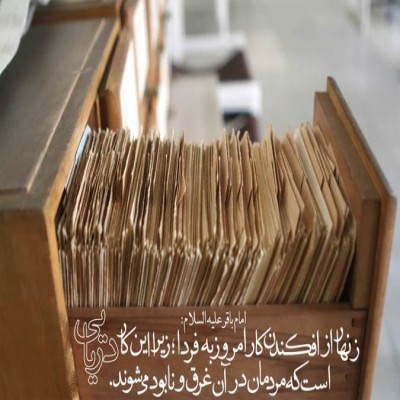 امام باقر علیه السلام:
زنهار از افکندن کار امروز به فردا؛ زیرا این کار دریایی
است که مردمان در آن غرق و نابود می‌شوند.